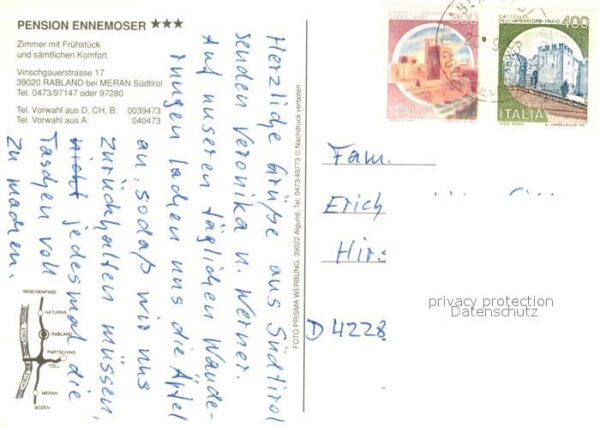 PENSION ENNEMOSER ★★★
Zimmer mit Frühstück
und sämtlichen Komfort.
Vinschgauerstrasse 17
39020 RABLAND bei MERAN Südtirol
Tel. 0473/97147 oder 97280
Tel. Vorwahl aus D, CH, B: 0039473
Tel. Vorwahl aus A: 040473
Herzliche Grüße aus Südtirol
senden Veronika u. Werner.
Auf unseren täglichen Wande-
rungen lachen uns die Äpfel
an, sodaß wir uns
zurückhalten müssen,
nicht jedesmal die
Taschen voll
zu machen.
RESCHENPASS
NATURNS
RABLAND
PARTSCHINS
TÖLL
MERAN
BOZEN
FOTO PRISMA WERBUNG, 39022 Algund, Tel. 0473/49773 © Nachdruck verboten
300
ITALIA
400
ITALIA
Fam.
Erich
Hir
D 4228
privacy protection
Datenschutz